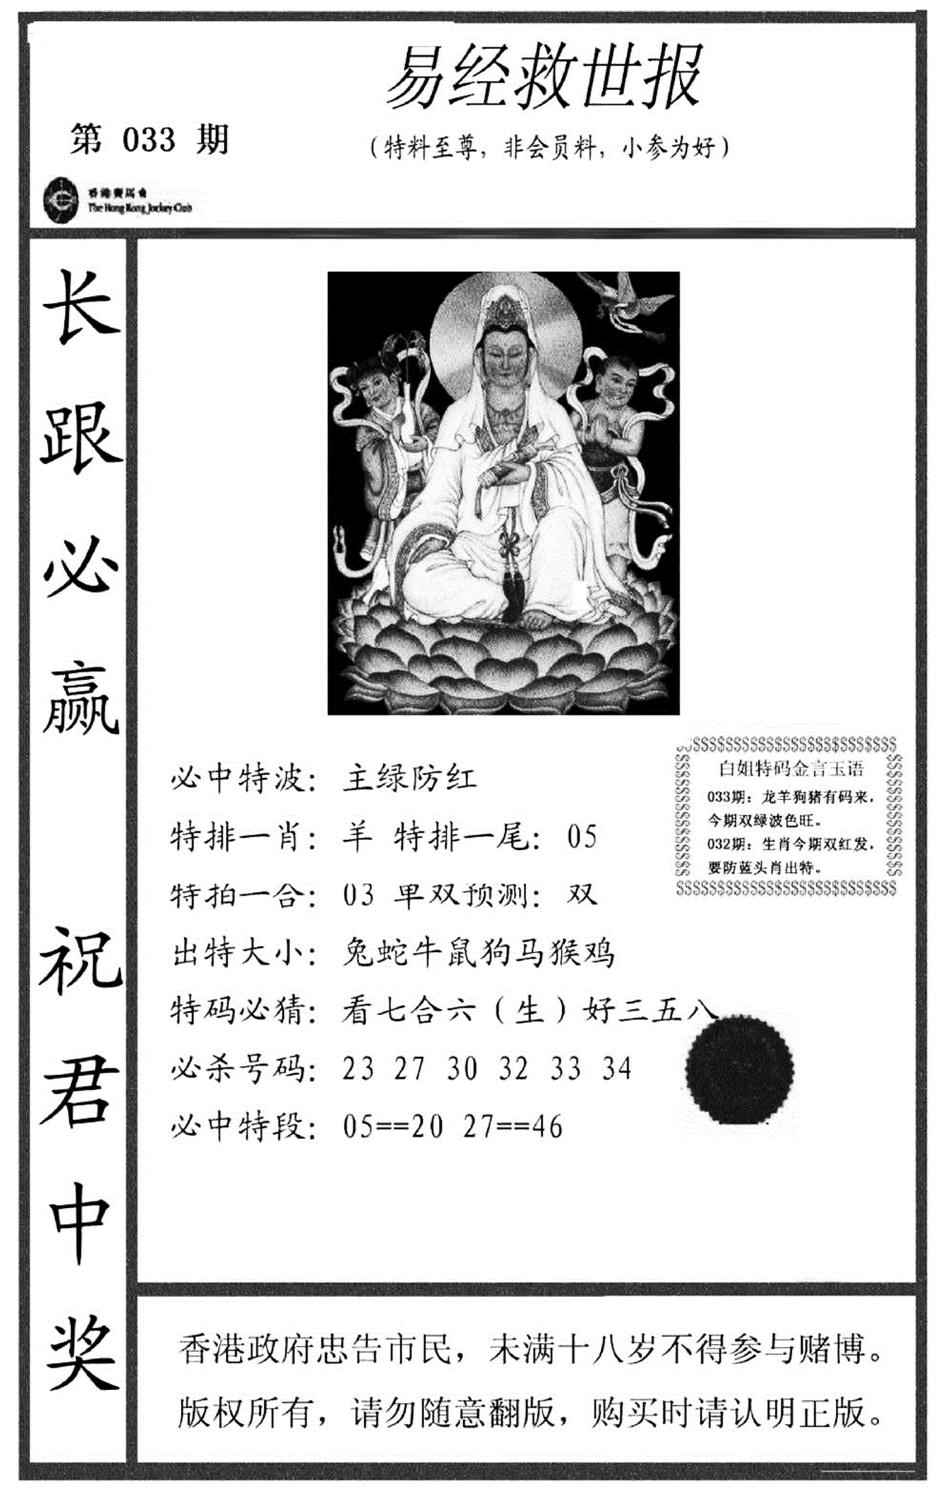 易经救世报
第 033 期
（特料至尊，非会员料，小参为好）
香港賽馬會
The Hong Kong Jockey Club
长跟必赢 祝君中奖
必中特波：主绿防红
特排一肖：羊 特排一尾：05
特拍一合：03 单双预测：双
出特大小：兔蛇牛鼠狗马猴鸡
特码必猜：看七合六（生）好三五八
必杀号码：23 27 30 32 33 34
必中特段：05==20 27==46
$$$$$$$$$$$$$$$$$$$$$$$$$$$
白姐特码金言玉语
033期：龙羊狗猪有码来，
今期双绿波色旺。
032期：生肖今期双红发，
要防蓝头肖出特。
$$$$$$$$$$$$$$$$$$$$$$$$$$$
香港政府忠告市民，未满十八岁不得参与赌博。
版权所有，请勿随意翻版，购买时请认明正版。